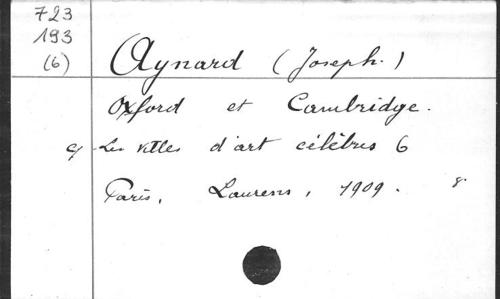 723
193
(6)
Aynard (Joseph.)
Oxford et Cambridge.
Les villes d'art célèbres 6
Paris, Laurens, 1909. 8°